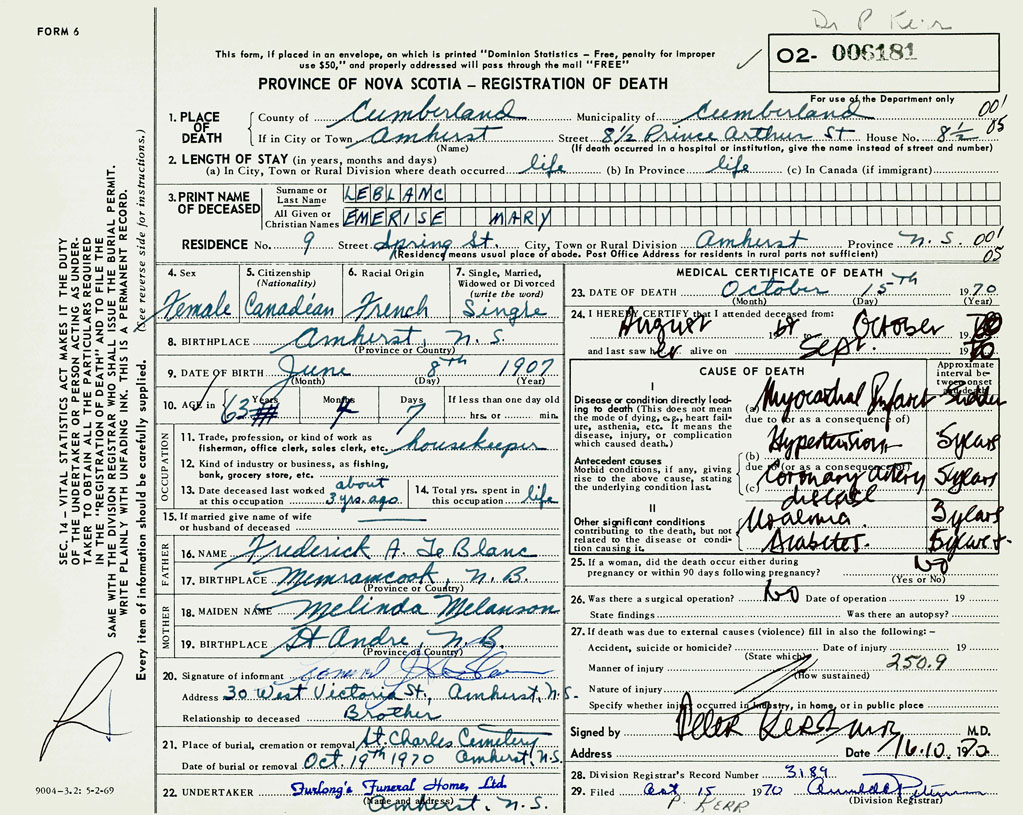 Dr P Kerr
FORM 6
This form, if placed in an envelope, on which is printed "Dominion Statistics – Free, penalty for improper
use $50," and properly addressed will pass through the mail "FREE"
PROVINCE OF NOVA SCOTIA – REGISTRATION OF DEATH
02- 006181
For use of the Department only
001
05
1. PLACE OF DEATH
County of Cumberland Municipality of Cumberland
If in City or Town Amherst Street 8½ Prince Arthur St House No. 8½
(Name) (If death occurred in a hospital or institution, give the name instead of street and number)
2. LENGTH OF STAY (in years, months and days)
(a) In City, Town or Rural Division where death occurred life (b) In Province life (c) In Canada (if immigrant)
3. PRINT NAME OF DECEASED
Surname or Last Name LEBLANC
All Given or Christian Names EMERISE MARY
RESIDENCE No. 9 Street Spring St. City, Town or Rural Division Amherst Province N.S. 001
05
(Residence means usual place of abode. Post Office Address for residents in rural parts not sufficient)
4. Sex Female
5. Citizenship (Nationality) Canadian
6. Racial Origin French
7. Single, Married, Widowed or Divorced (write the word) Single
8. BIRTHPLACE Amherst, N.S.
(Province or Country)
9. DATE OF BIRTH June 8th 1907
(Month) (Day) (Year)
10. AGE in 63 Years 4 Months 7 Days If less than one day old
hrs. or min.
OCCUPATION
11. Trade, profession, or kind of work as
fisherman, office clerk, sales clerk, etc. housekeeper
12. Kind of industry or business, as fishing,
bank, grocery store, etc.
13. Date deceased last worked at this occupation about 3 yrs. ago
14. Total yrs. spent in this occupation life
15. If married give name of wife
or husband of deceased
FATHER
16. NAME Frederick A. Le Blanc
17. BIRTHPLACE Memramcook, N.B.
(Province or Country)
MOTHER
18. MAIDEN NAME Melinda Melanson
19. BIRTHPLACE St Andre, N.B.
(Province or Country)
20. Signature of informant
Address 30 West Victoria St, Amherst, N.S.
Relationship to deceased Brother
21. Place of burial, cremation or removal St. Charles Cemetery
Date of burial or removal Oct. 19th 1970 Amherst, N.S.
22. UNDERTAKER Furlong's Funeral Home, Ltd.
(Name and address)
Amherst, N.S.
MEDICAL CERTIFICATE OF DEATH
23. DATE OF DEATH October 15th 1970
(Month) (Day) (Year)
24. I HEREBY CERTIFY that I attended deceased from:
August 19 68 October 19 70
and last saw her alive on Sept. 19 70
CAUSE OF DEATH
Approximate interval between onset and death
I
Disease or condition directly leading to death (This does not mean the mode of dying, e.g., heart failure, asthenia, etc. It means the disease, injury, or complication which caused death.)
(a) Myocardial Infarct Sudden
due to (or as a consequence of)
(b) Hypertension 5 years
Antecedent causes
Morbid conditions, if any, giving rise to the above cause, stating the underlying condition last.
due to (or as a consequence of)
(c) Coronary artery disease 5 years
II
Other significant conditions contributing to the death, but not related to the disease or condition causing it.
Uraemia 3 years
Diabetes. 5 years
25. If a woman, did the death occur either during
pregnancy or within 90 days following pregnancy? No
(Yes or No)
26. Was there a surgical operation? No Date of operation 19
State findings Was there an autopsy?
27. If death was due to external causes (violence) fill in also the following: –
Accident, suicide or homicide? Date of injury 19
(State which)
Manner of injury 250.9
(How sustained)
Nature of injury
Specify whether injury occurred in industry, in home, or in public place
Signed by Peter Kerr M.D.
Address Date 16.10.1970
28. Division Registrar's Record Number 3189
29. Filed Oct 15 1970
(Division Registrar)
P. KERR
SEC. 14 – VITAL STATISTICS ACT MAKES IT THE DUTY
OF THE UNDERTAKER OR PERSON ACTING AS UNDER-
TAKER TO OBTAIN ALL THE PARTICULARS REQUIRED
IN THE "REGISTRATION OF DEATH" AND TO FILE THE
SAME WITH THE DIVISION REGISTRAR WHO SHALL ISSUE THE BURIAL PERMIT.
WRITE PLAINLY WITH UNFADING INK. THIS IS A PERMANENT RECORD.
Every item of information should be carefully supplied. (See reverse side for instructions.)
9004-3.2: 5-2-69